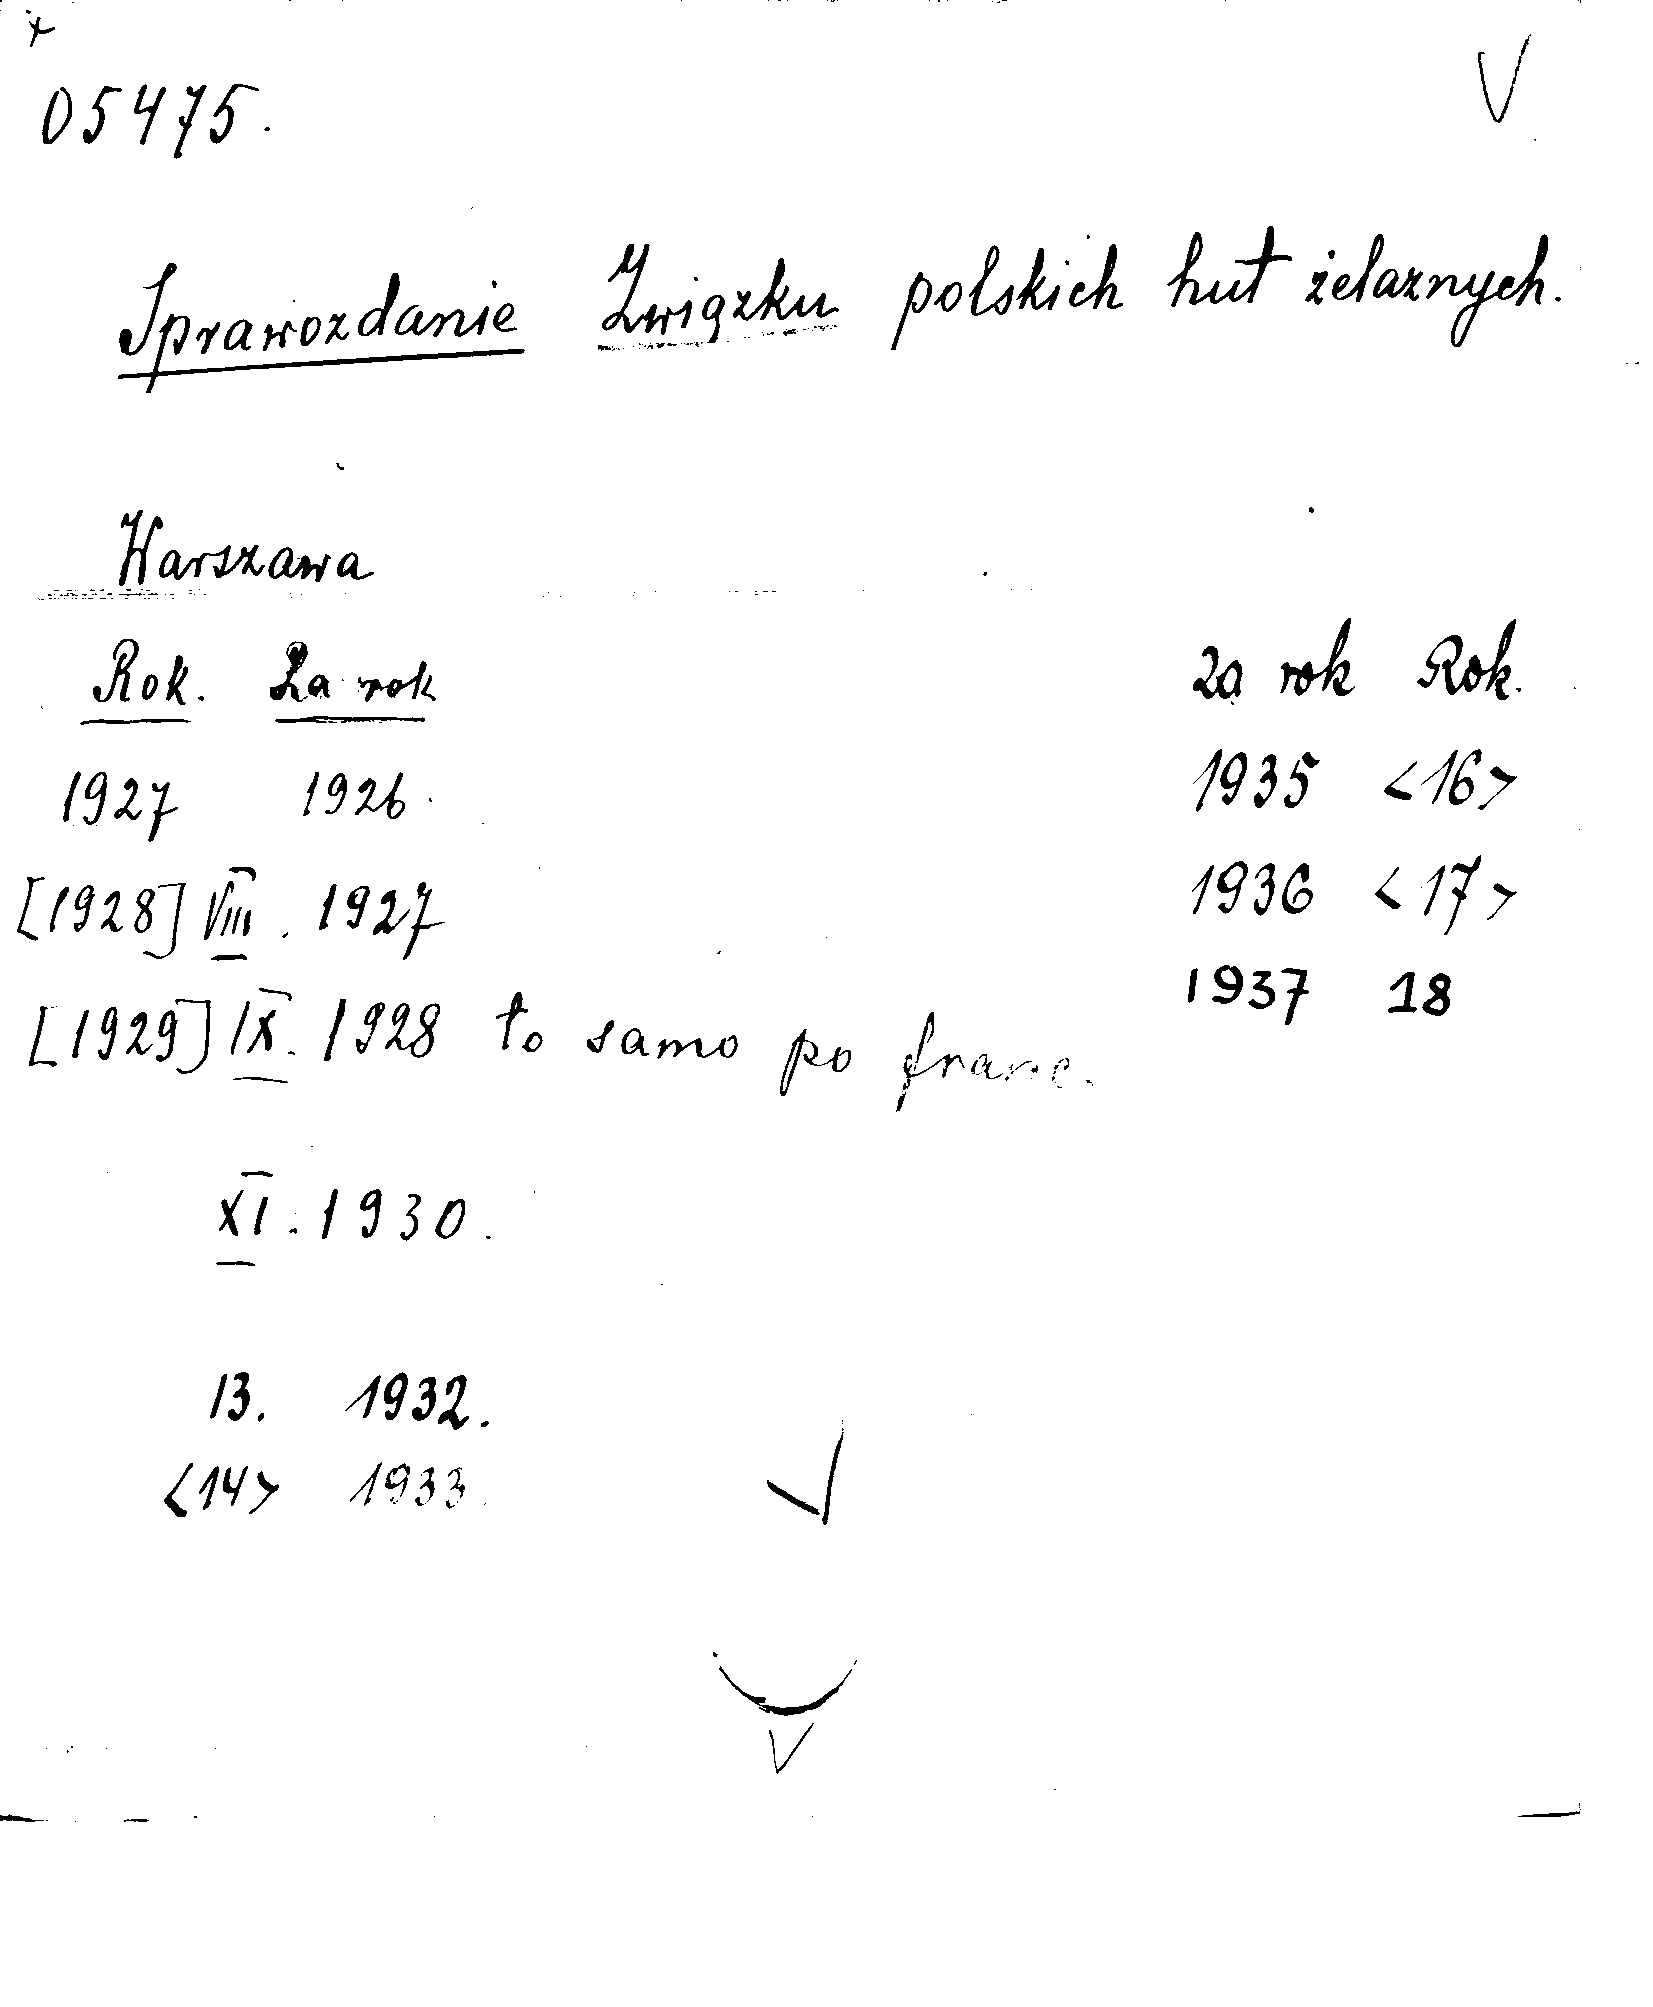 05475.
Sprawozdanie Związku polskich hut żelaznych.
Warszawa
Rok. Za rok
1927 1926
[1928] VIII. 1927
[1929] IX. 1928 to samo po franc.
XI. 1930.
13. 1932.
<14> 1933
za rok Rok.
1935 <16>
1936 <17>
1937 18